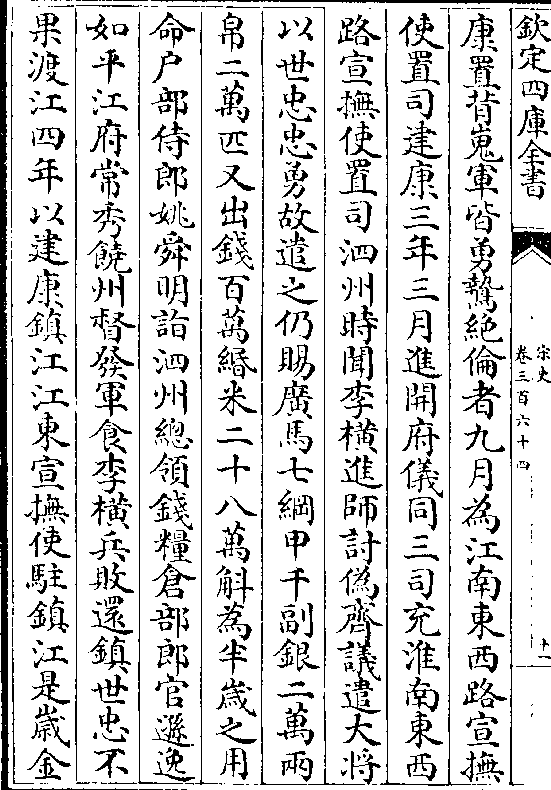 欽定四庫全書
宋史
卷三百六十四
十一
康置背嵬軍皆勇鷙絶倫者九月為江南東西路宣撫
使置司建康三年三月進開府儀同三司充淮南東西
路宣撫使置司泗州時聞李横進師討偽齊議遣大將
以世忠忠勇故遣之仍賜廣馬七綱甲千副銀二萬兩
帛二萬匹又出錢百萬緡米二十八萬斛為半歲之用
命户部侍郎姚舜明詣泗州總領錢糧倉部郎官遜逸
如平江府常秀饒州督發軍食李横兵敗還鎮世忠不
果渡江四年以建康鎮江江東宣撫使駐鎮江是歲金